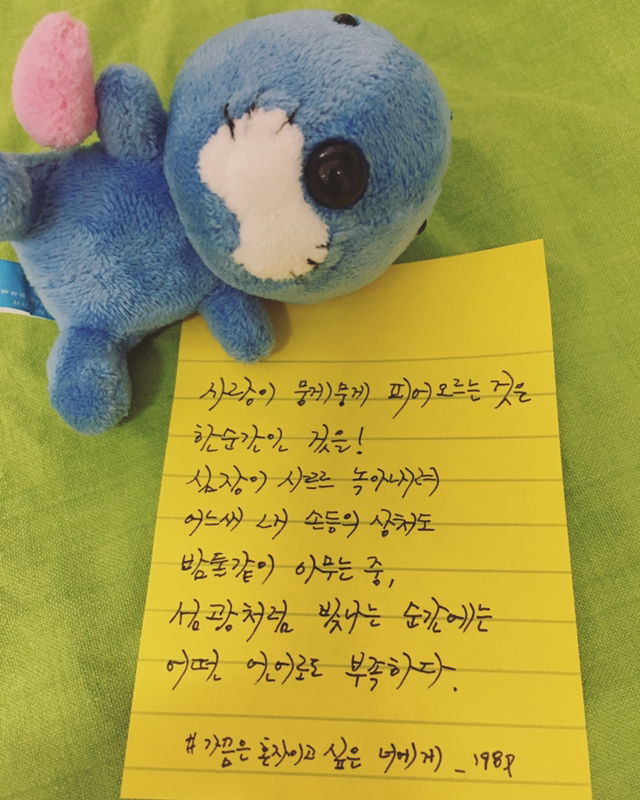 사랑이 뭉게뭉게 피어오르는 것은
한순간인 것을!
심장이 사르르 녹아내려
어느새 내 손등의 상처도
밤톨같이 아무는 중,
섬광처럼 빛나는 순간에는
어떤 언어로도 부족하다.
#가끔은 혼자이고 싶은 너에게 _198p
www.